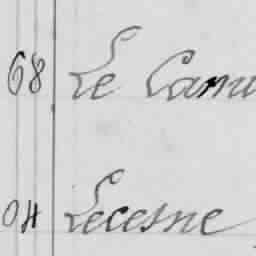 68 Le Camu
04 Lecesne